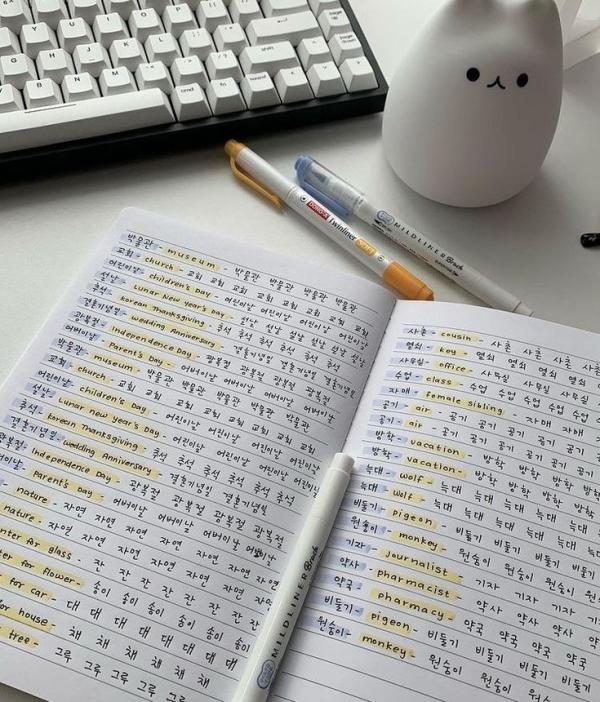 박물관 - museum - 박물관 박물관 박물관 박물관
교회 - church - 교회 교회 교회 교회 교회 교회
어린이날 - children's Day - 어린이날 어린이날 어린이날
설날 - Lunar New Year's day - 설날 설날 설날 설날 설날
추석 - Korean Thanksgiving - 추석 추석 추석 추석 추석
결혼기념일 - wedding Anniversary - 결혼기념일 결혼기념일
광복절 - Independence Day - 광복절 광복절 광복절
어버이날 - Parent's Day - 어버이날 어버이날 어버이날
박물관 - museum - 박물관 박물관 박물관 박물관
교회 - church - 교회 교회 교회 교회 교회 교회
어린이날 - children's Day - 어린이날 어린이날 어린이날
설날 - Lunar new year's day -
추석 - Korean Thanksgiving - 추석 추석 추석 추석 추석
결혼기념일 - wedding Anniversary - 결혼기념일 결혼기념일
광복절 - Independence Day - 광복절 광복절 광복절
Parent's Day - 어버이날 어버이날 어버이날
nature - 자연 자연 자연 자연 자연
nature - 자연 자연 자연 자연 자연
for glass - 잔 잔 잔 잔 잔 잔
for flower - 송이 송이 송이 송이 송이
for car - 대 대 대 대 대 대 대
for house - 채 채 채 채 채
tree - 그루 그루 그루 그루
사촌 - cousin - 사촌 사촌 사촌
열쇠 - key - 열쇠 열쇠 열쇠 열쇠
사무실 - office - 사무실 사무실 사무실
수업 - class - 수업 수업 수업 수업 수업
자매 - female sibling - 자매 자매
공기 - air - 공기 공기 공기 공기
공기 - air - 공기 공기 공기 공기
방학 - vacation - 방학 방학 방학 방학
방학 - vacation - 방학 방학 방학
늑대 - wolf - 늑대 늑대 늑대 늑대
늑대 - wolf - 늑대 늑대 늑대 늑대
비둘기 - pigeon - 비둘기 비둘기 비둘기
원숭이 - monkey - 원숭이 원숭이
기자 - journalist - 기자 기자 기자
약사 - pharmacist - 약사 약사 약사
약국 - pharmacy - 약국 약국 약국
비둘기 - pigeon - 비둘기 비둘기 비둘기
원숭이 - monkey - 원숭이 원숭이 원숭이
DONG-A Twinliner SOFT
MILDLINER Brush
MILDLINER Brush